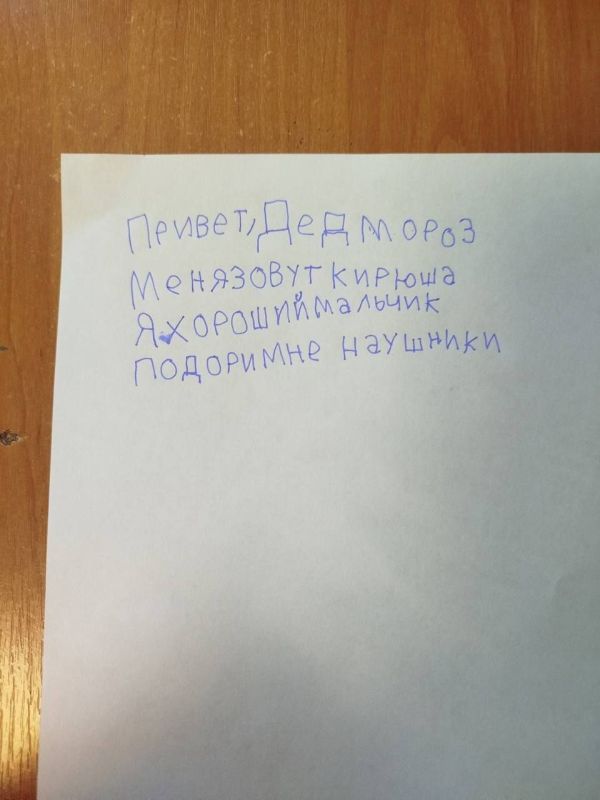 Привет, Дед мороз
Меня зовут кирюша
Я хороший мальчик
подори мне наушники